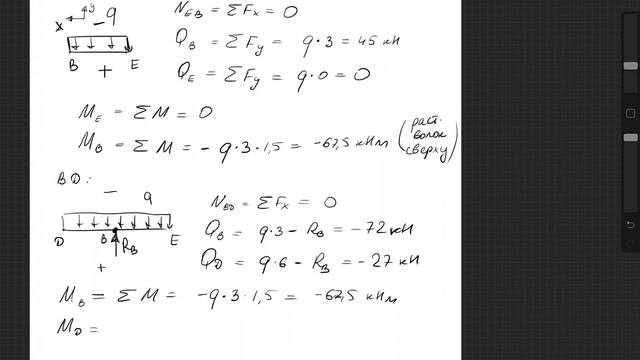 y
x
- q
B + E
N_EB = ΣFx = 0
Q_B = ΣFy = q·3 = 45 кН
Q_E = ΣFy = q·0 = 0
M_E = ΣM = 0
M_B = ΣM = -q·3·1,5 = -67,5 кНм (раст. волок сверху)
BD:
- q
D B R_B E
+
N_BD = ΣFx = 0
Q_B = q·3 - R_B = -72 кН
Q_D = q·6 - R_B = -27 кН
M_B = ΣM = -q·3·1,5 = -67,5 кНм
M_D =